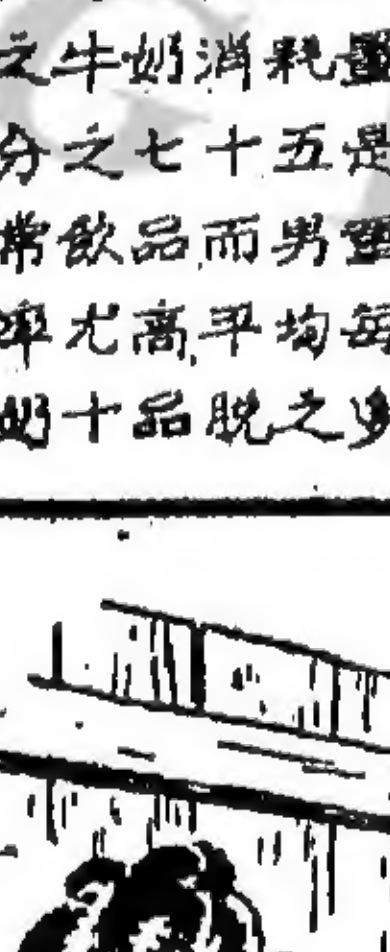 之牛奶消耗量
分之七十五是
常飲品,而男
率尤高,平均每
奶十品脫之多